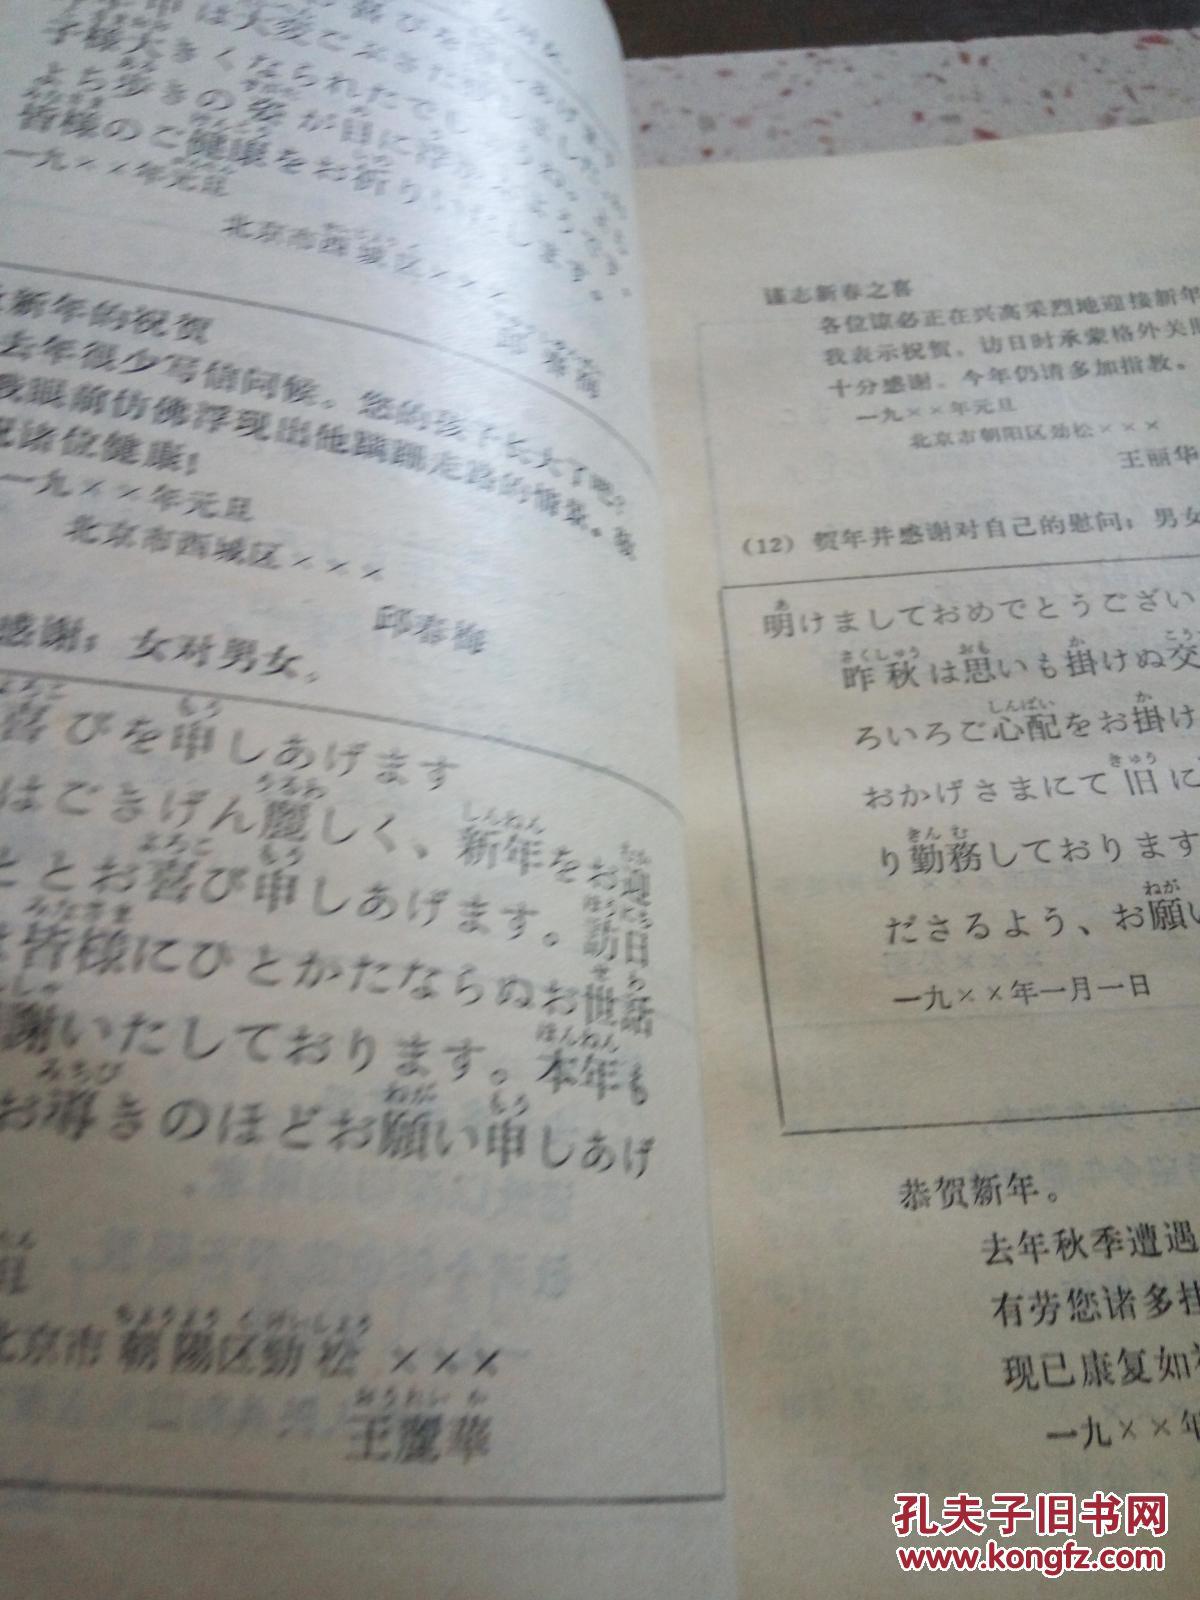 子様大きくなられたでしょうね。
よち歩きの姿が目に浮かぶようです。
皆様のご健康をお祈りいたします。
一九××年元旦
北京市西城区×××
邱春梅
新年的祝贺
去年很少写信问候。您的孩子长大了吧？
我眼前仿佛浮现出他蹒跚走路的情景。
祝诸位健康！
一九××年元旦
北京市西城区×××
邱春梅
感谢：女对男女。
喜びを申しあげます
はごきげん麗しく、新年をお迎
ととお喜び申しあげます。訪日
皆様にひとかたならぬお世話
謝いたしております。本年も
お導きのほどお願い申しあげ
北京市朝陽区勁松×××
王麗華
谨志新春之喜
各位谅必正在兴高采烈地迎接新年
我表示祝贺。访日时承蒙格外关照
十分感谢。今年仍请多加指教。
一九××年元旦
北京市朝阳区劲松×××
王丽华
（12）贺年并感谢对自己的慰问：男女
明けましておめでとうござい
昨秋は思いも掛けぬ交
ろいろご心配をお掛け
おかげさまにて旧に
り勤務しております
ださるよう、お願い
一九××年一月一日
恭贺新年。
去年秋季遭遇
有劳您诸多挂
现已康复如初
一九××年
孔夫子旧书网
www.kongfz.com